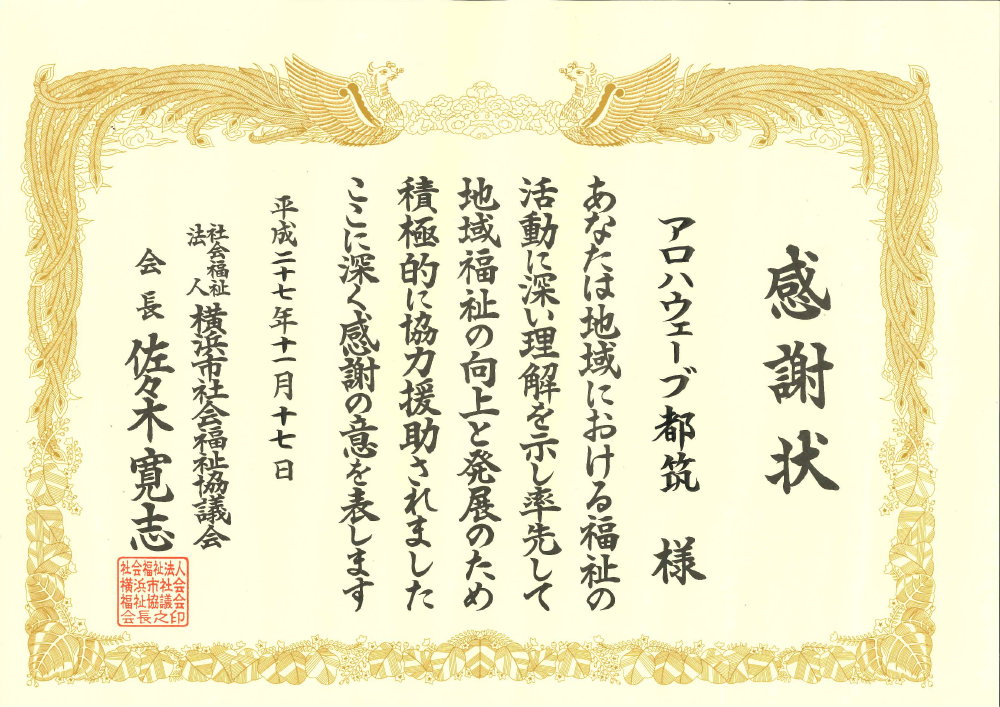 感謝状
アロハウェーブ都筑 様
あなたは地域における福祉の
活動に深い理解を示し率先して
地域福祉の向上と発展のため
積極的に協力援助されました
ここに深く感謝の意を表します
平成二十七年十一月十七日
社会福祉法人 横浜市社会福祉協議会
会長 佐々木寛志
社会福祉法人
横浜市社会
福祉協議会
会長之印